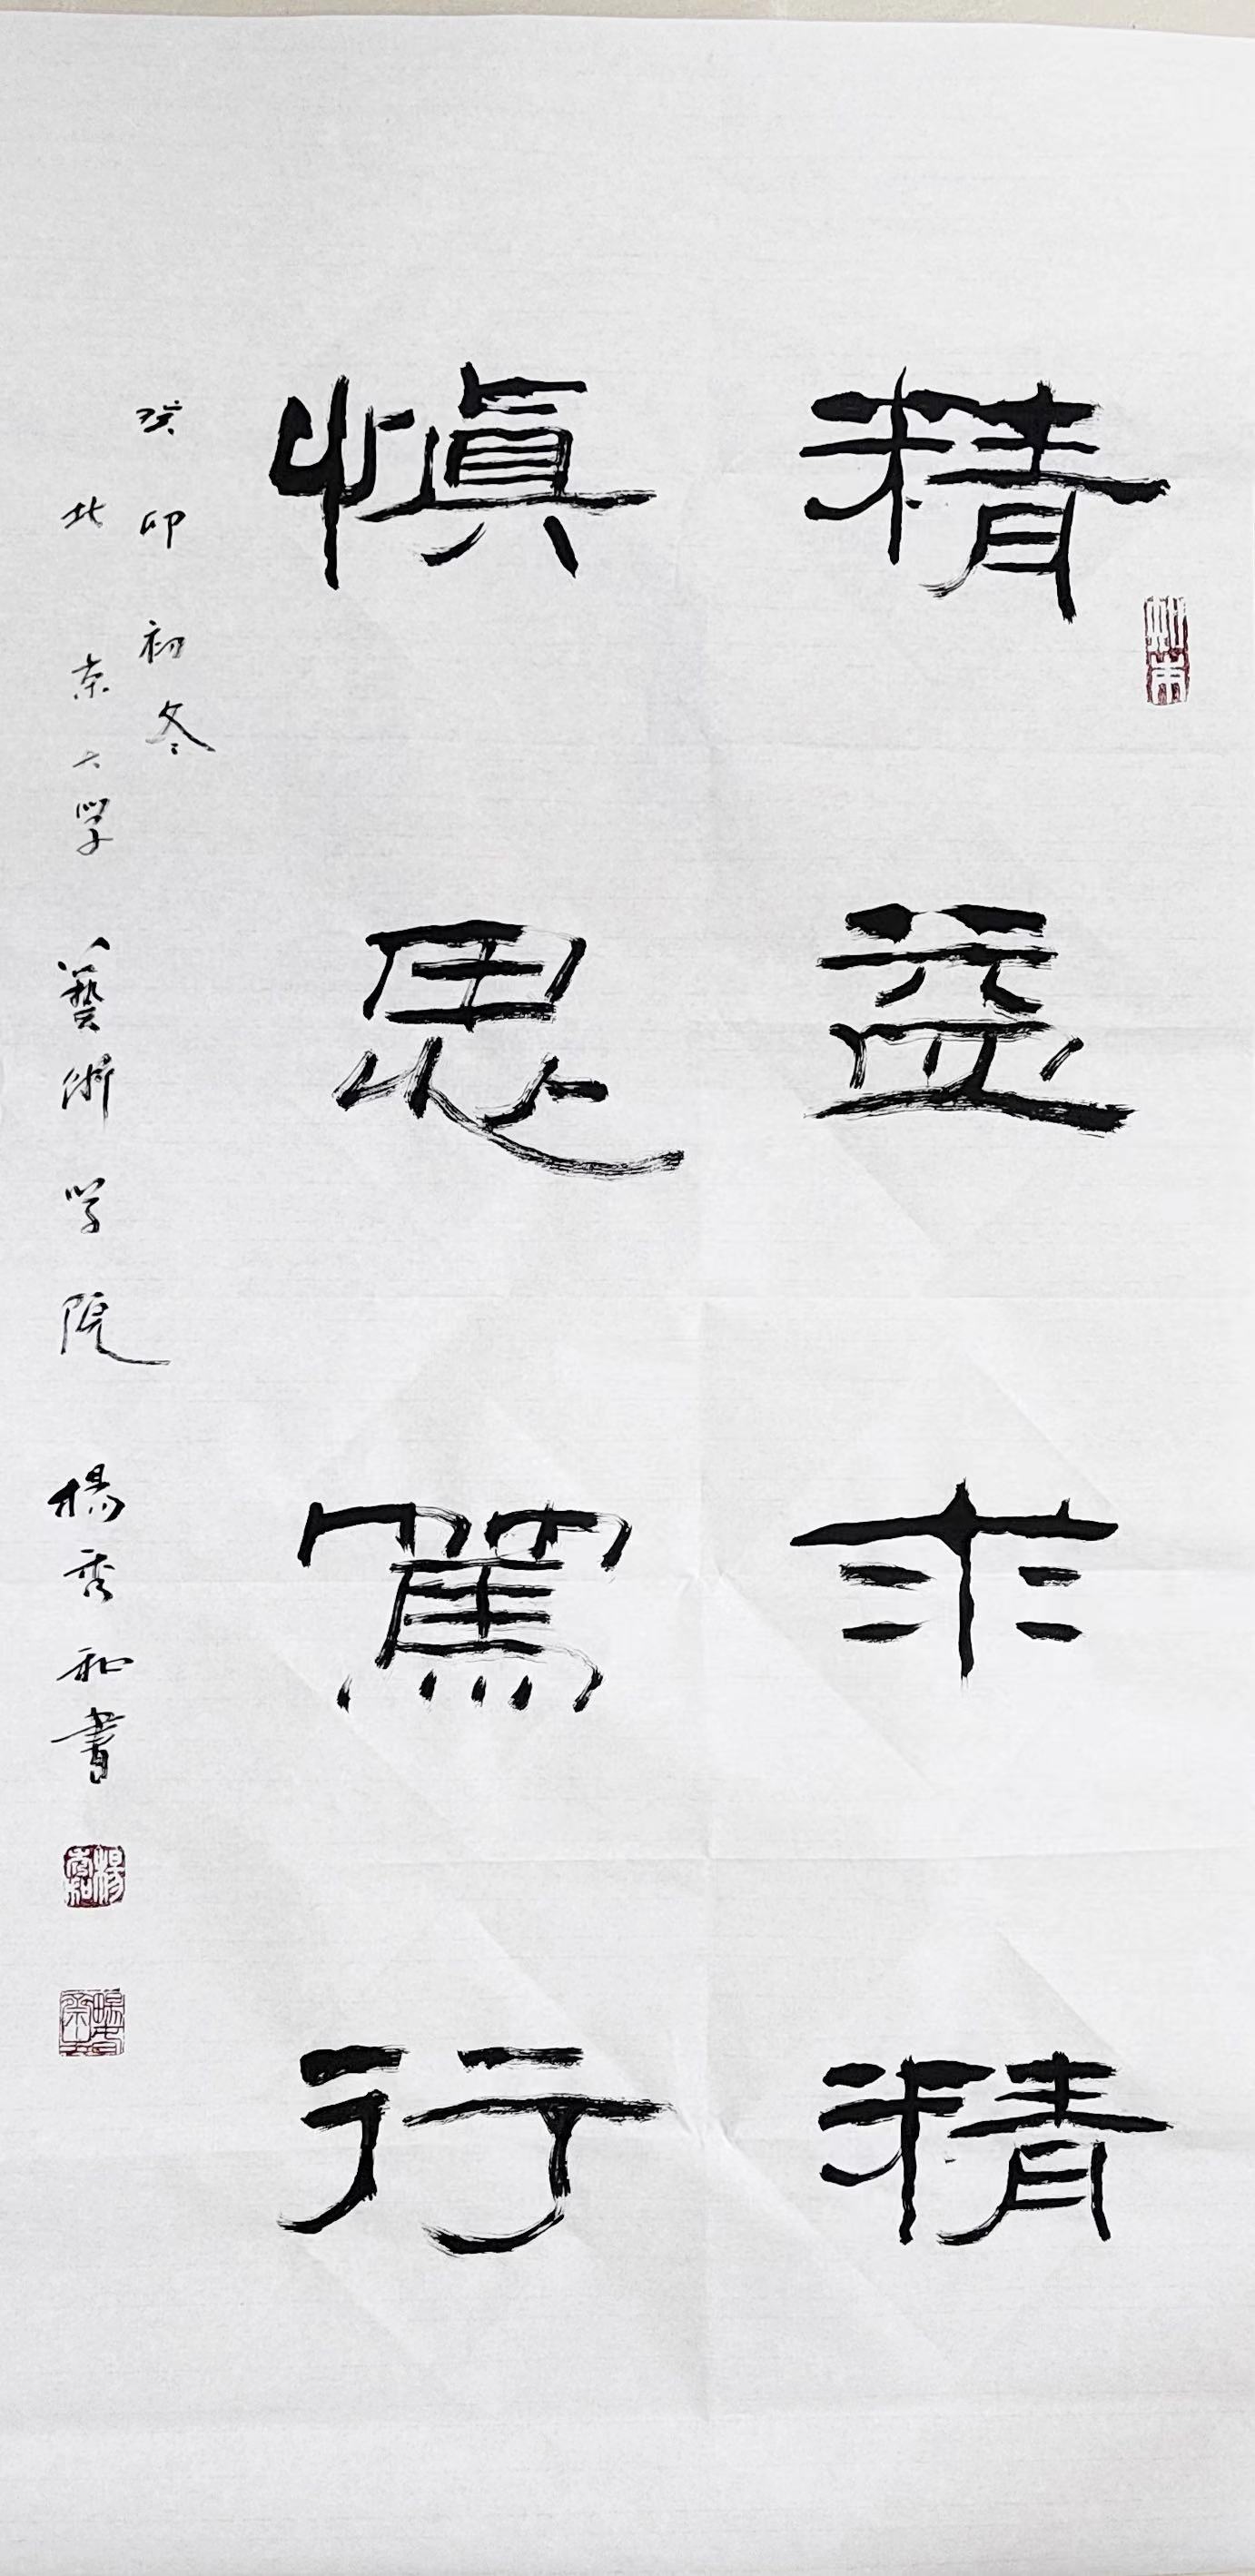 精益求精
慎思篤行
癸卯初冬
北京大學藝術學院楊秀和書